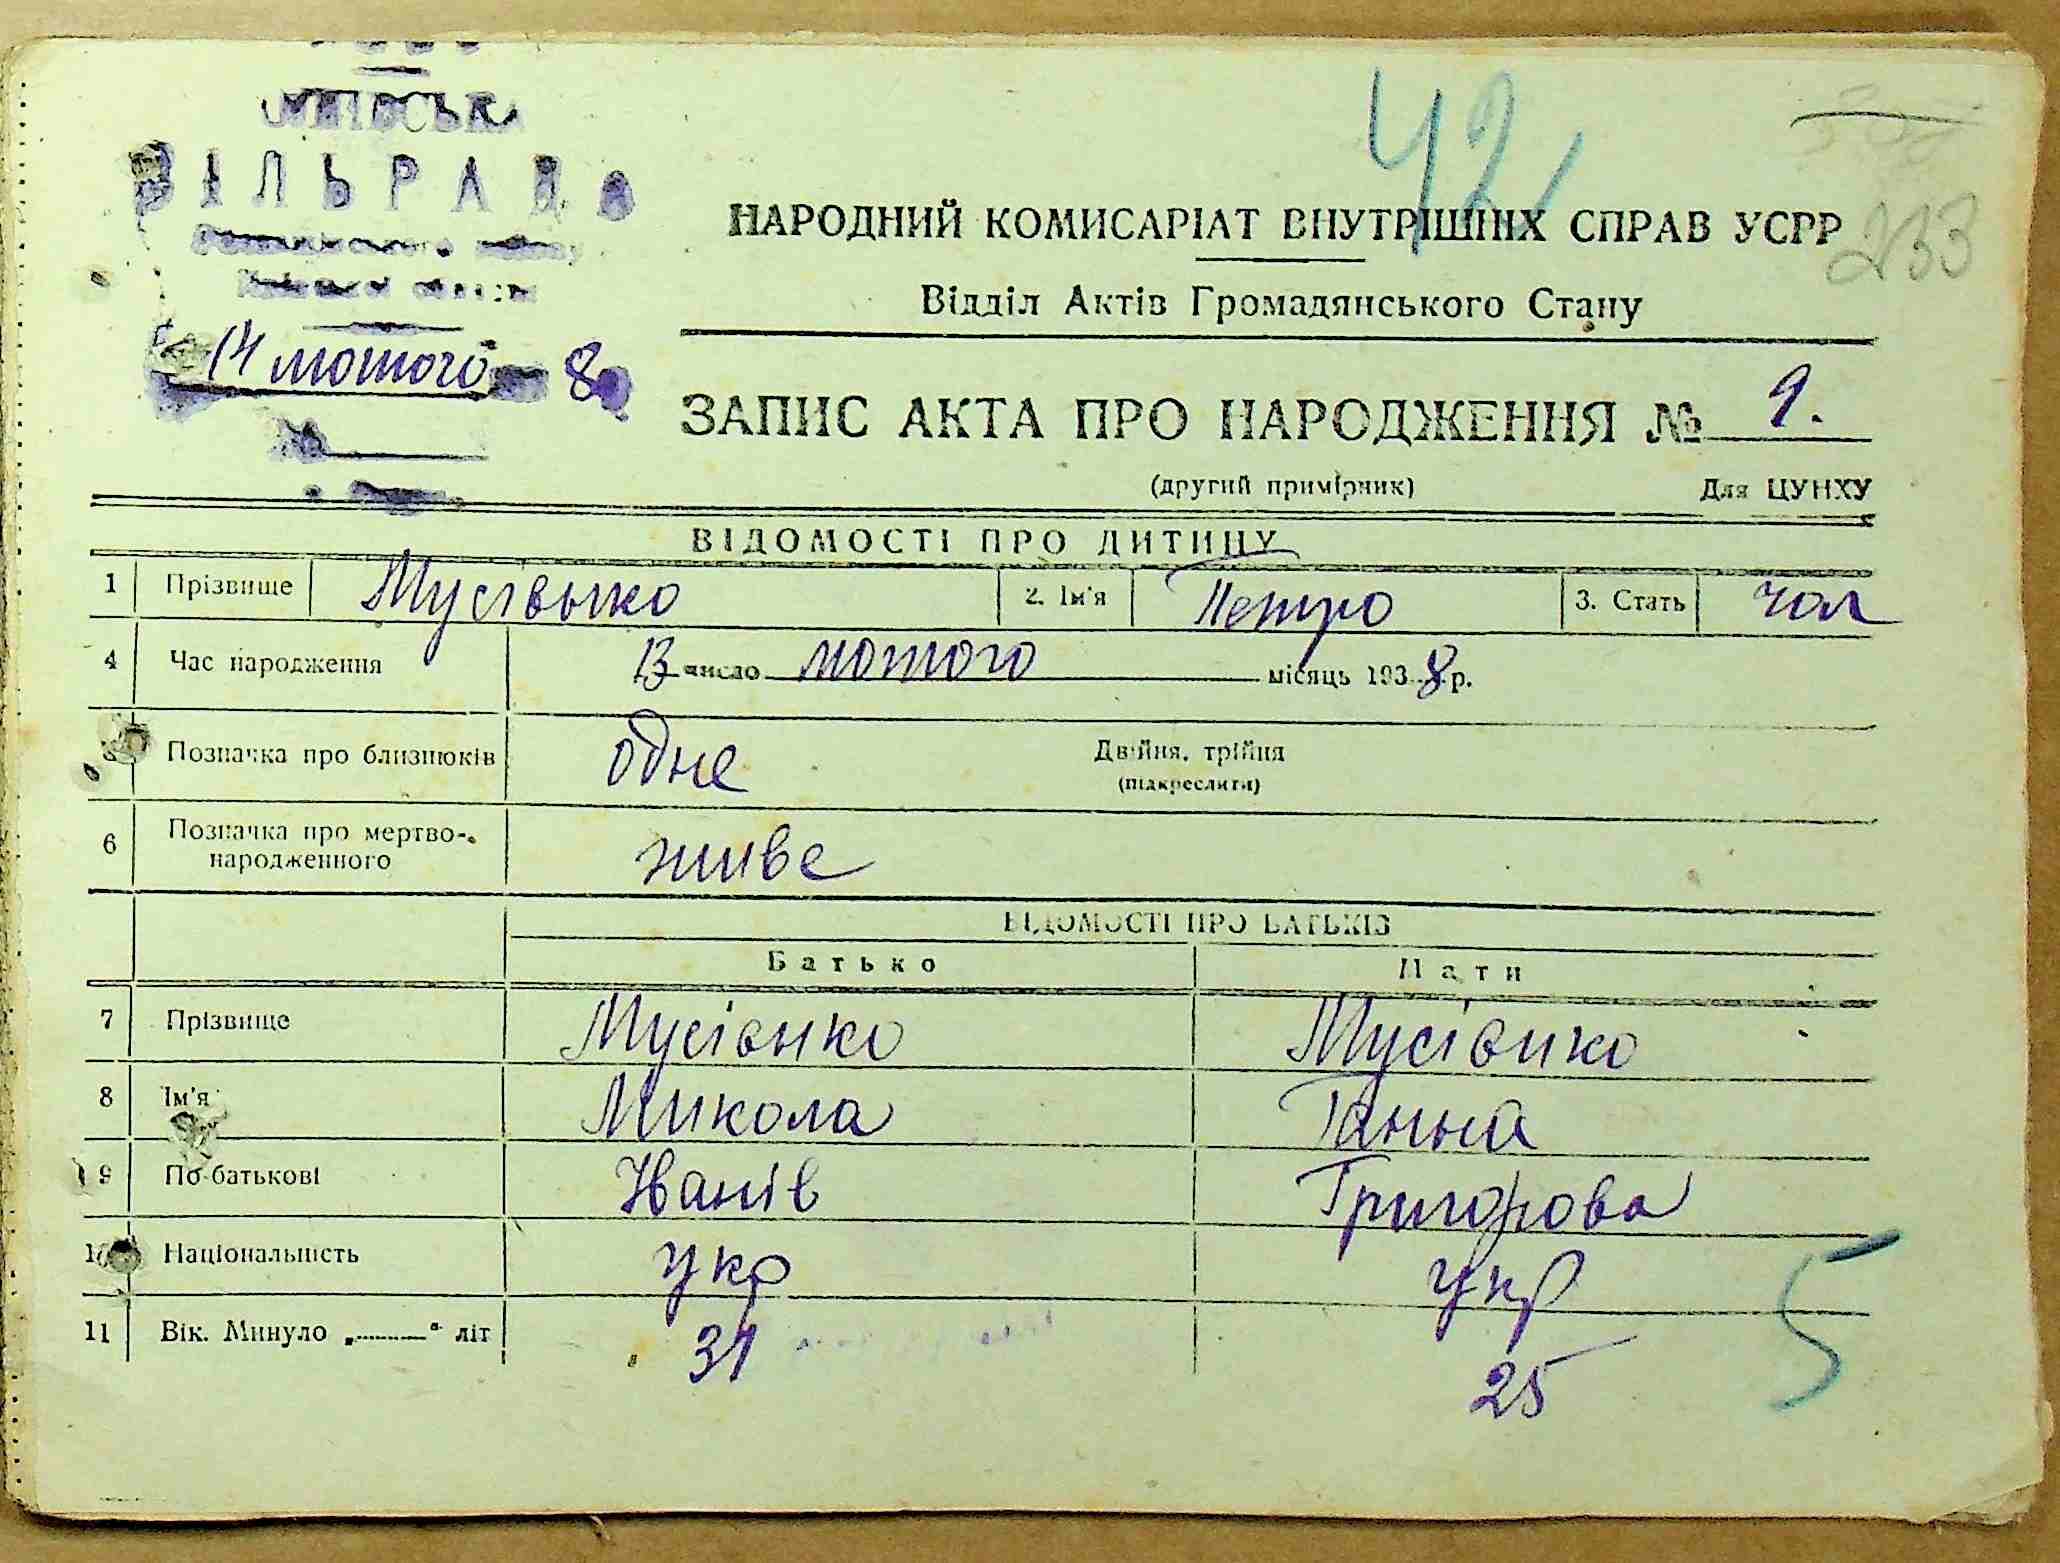 СІЛЬРАДА
14 лютого 8
№
42
233
НАРОДНИЙ КОМИСАРІАТ ВНУТРІШНІХ СПРАВ УСРР
Відділ Актів Громадянського Стану
ЗАПИС АКТА ПРО НАРОДЖЕННЯ № 9.
(другий примірник) Для ЦУНХУ
ВІДОМОСТІ ПРО ДИТИНУ
1 Прізвище Мусівько 2. Ім'я Петро 3. Стать чол
4 Час народження 13 число лютого місяць 1938 р.
5 Позначка про близнюків одне Двійня, трійня
(підкреслити)
6 Позначка про мертво-
народженного живе
ВІДОМОСТІ ПРО БАТЬКІВ
Батько Мати
7 Прізвище Мусівнко Мусівнко
8 Ім'я Микола Ганна
9 По-батькові Іванів Григорова
10 Національність укр укр
11 Вік. Минуло „ “ літ 31 25
5